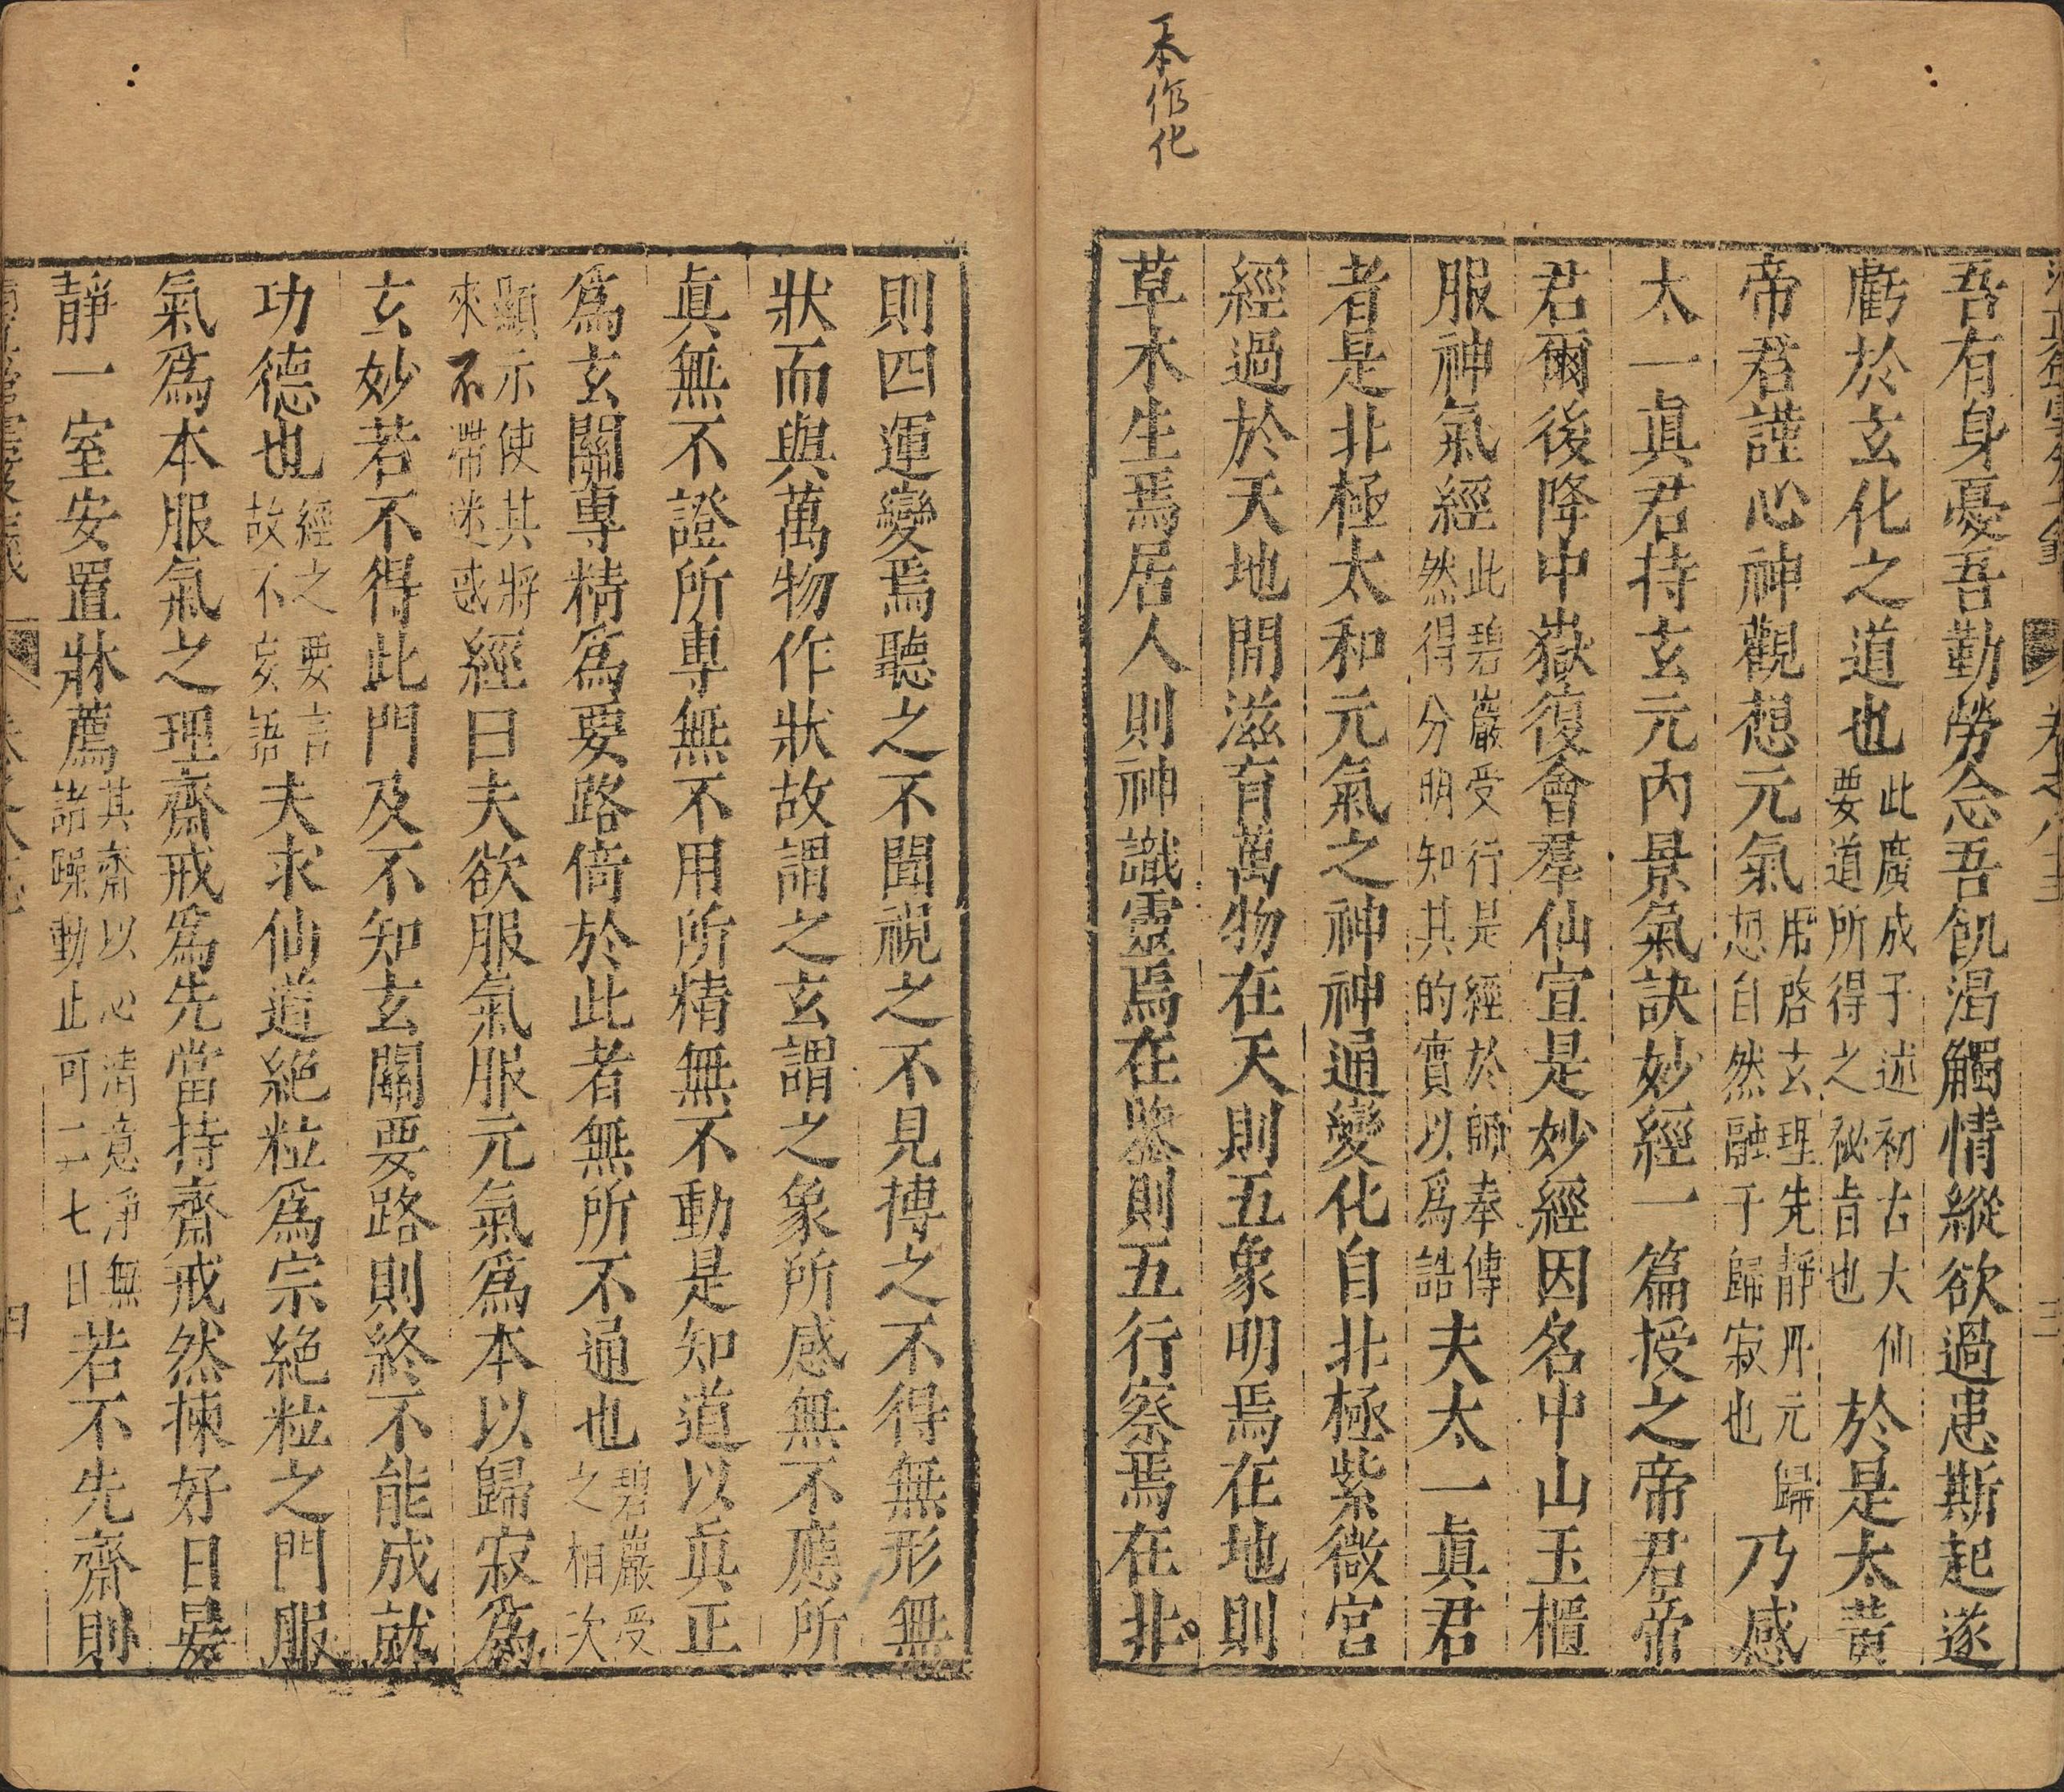 一本作化
吾有身憂吾勤勞念吾飢渴觸情縱欲過患斯起遂
虧於玄化之道也此廣成子述初古大仙要道所得之祕旨也於是太黃
帝君謹心神觀想元氣用啓玄理先靜丹元歸想自然融于歸寂也乃感
太一眞君持玄元內景氣訣妙經一篇授之帝君帝
君爾後降中嶽復會羣仙宣是妙經因名中山玉櫃
服神氣經此碧巖受行是經於師奉傳然得分明知其的實以爲誥夫太一眞君
者是北極太和元氣之神神通變化自北極紫微宮
經過於天地間滋育萬物在天則五象明焉在地則
草木生焉居人則神識靈焉在臟則五行察焉在非
則四運變焉聽之不聞視之不見搏之不得無形無
狀而與萬物作狀故謂之玄謂之象所感無不應所
眞無不證所專無不用所精無不動是知道以眞正
爲玄關專精爲要路倚於此者無所不通也碧巖受之相次
顯示使其將來不帶迷惑經曰夫欲服氣服元氣爲本以歸寂爲
玄妙若不得此門及不知玄關要路則終不能成就
功德也經之要言故不妄語夫求仙道絕粒爲宗絕粒之門服
氣爲本服氣之理齋戒爲先當持齋戒然揀好日晏
靜一室安置牀薦其齋以心清意淨無諸躁動止可二七日若不先齋則
四